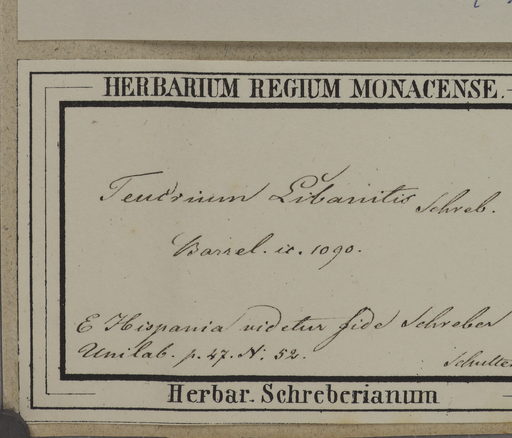 HERBARIUM REGIUM MONACENSE.
Teucrium Libanitis Schreb.
Barrel. ic. 1090.
E Hispania videtur fide Schreber
Unilab. p. 47. N. 52.
Schultes
Herbar. Schreberianum